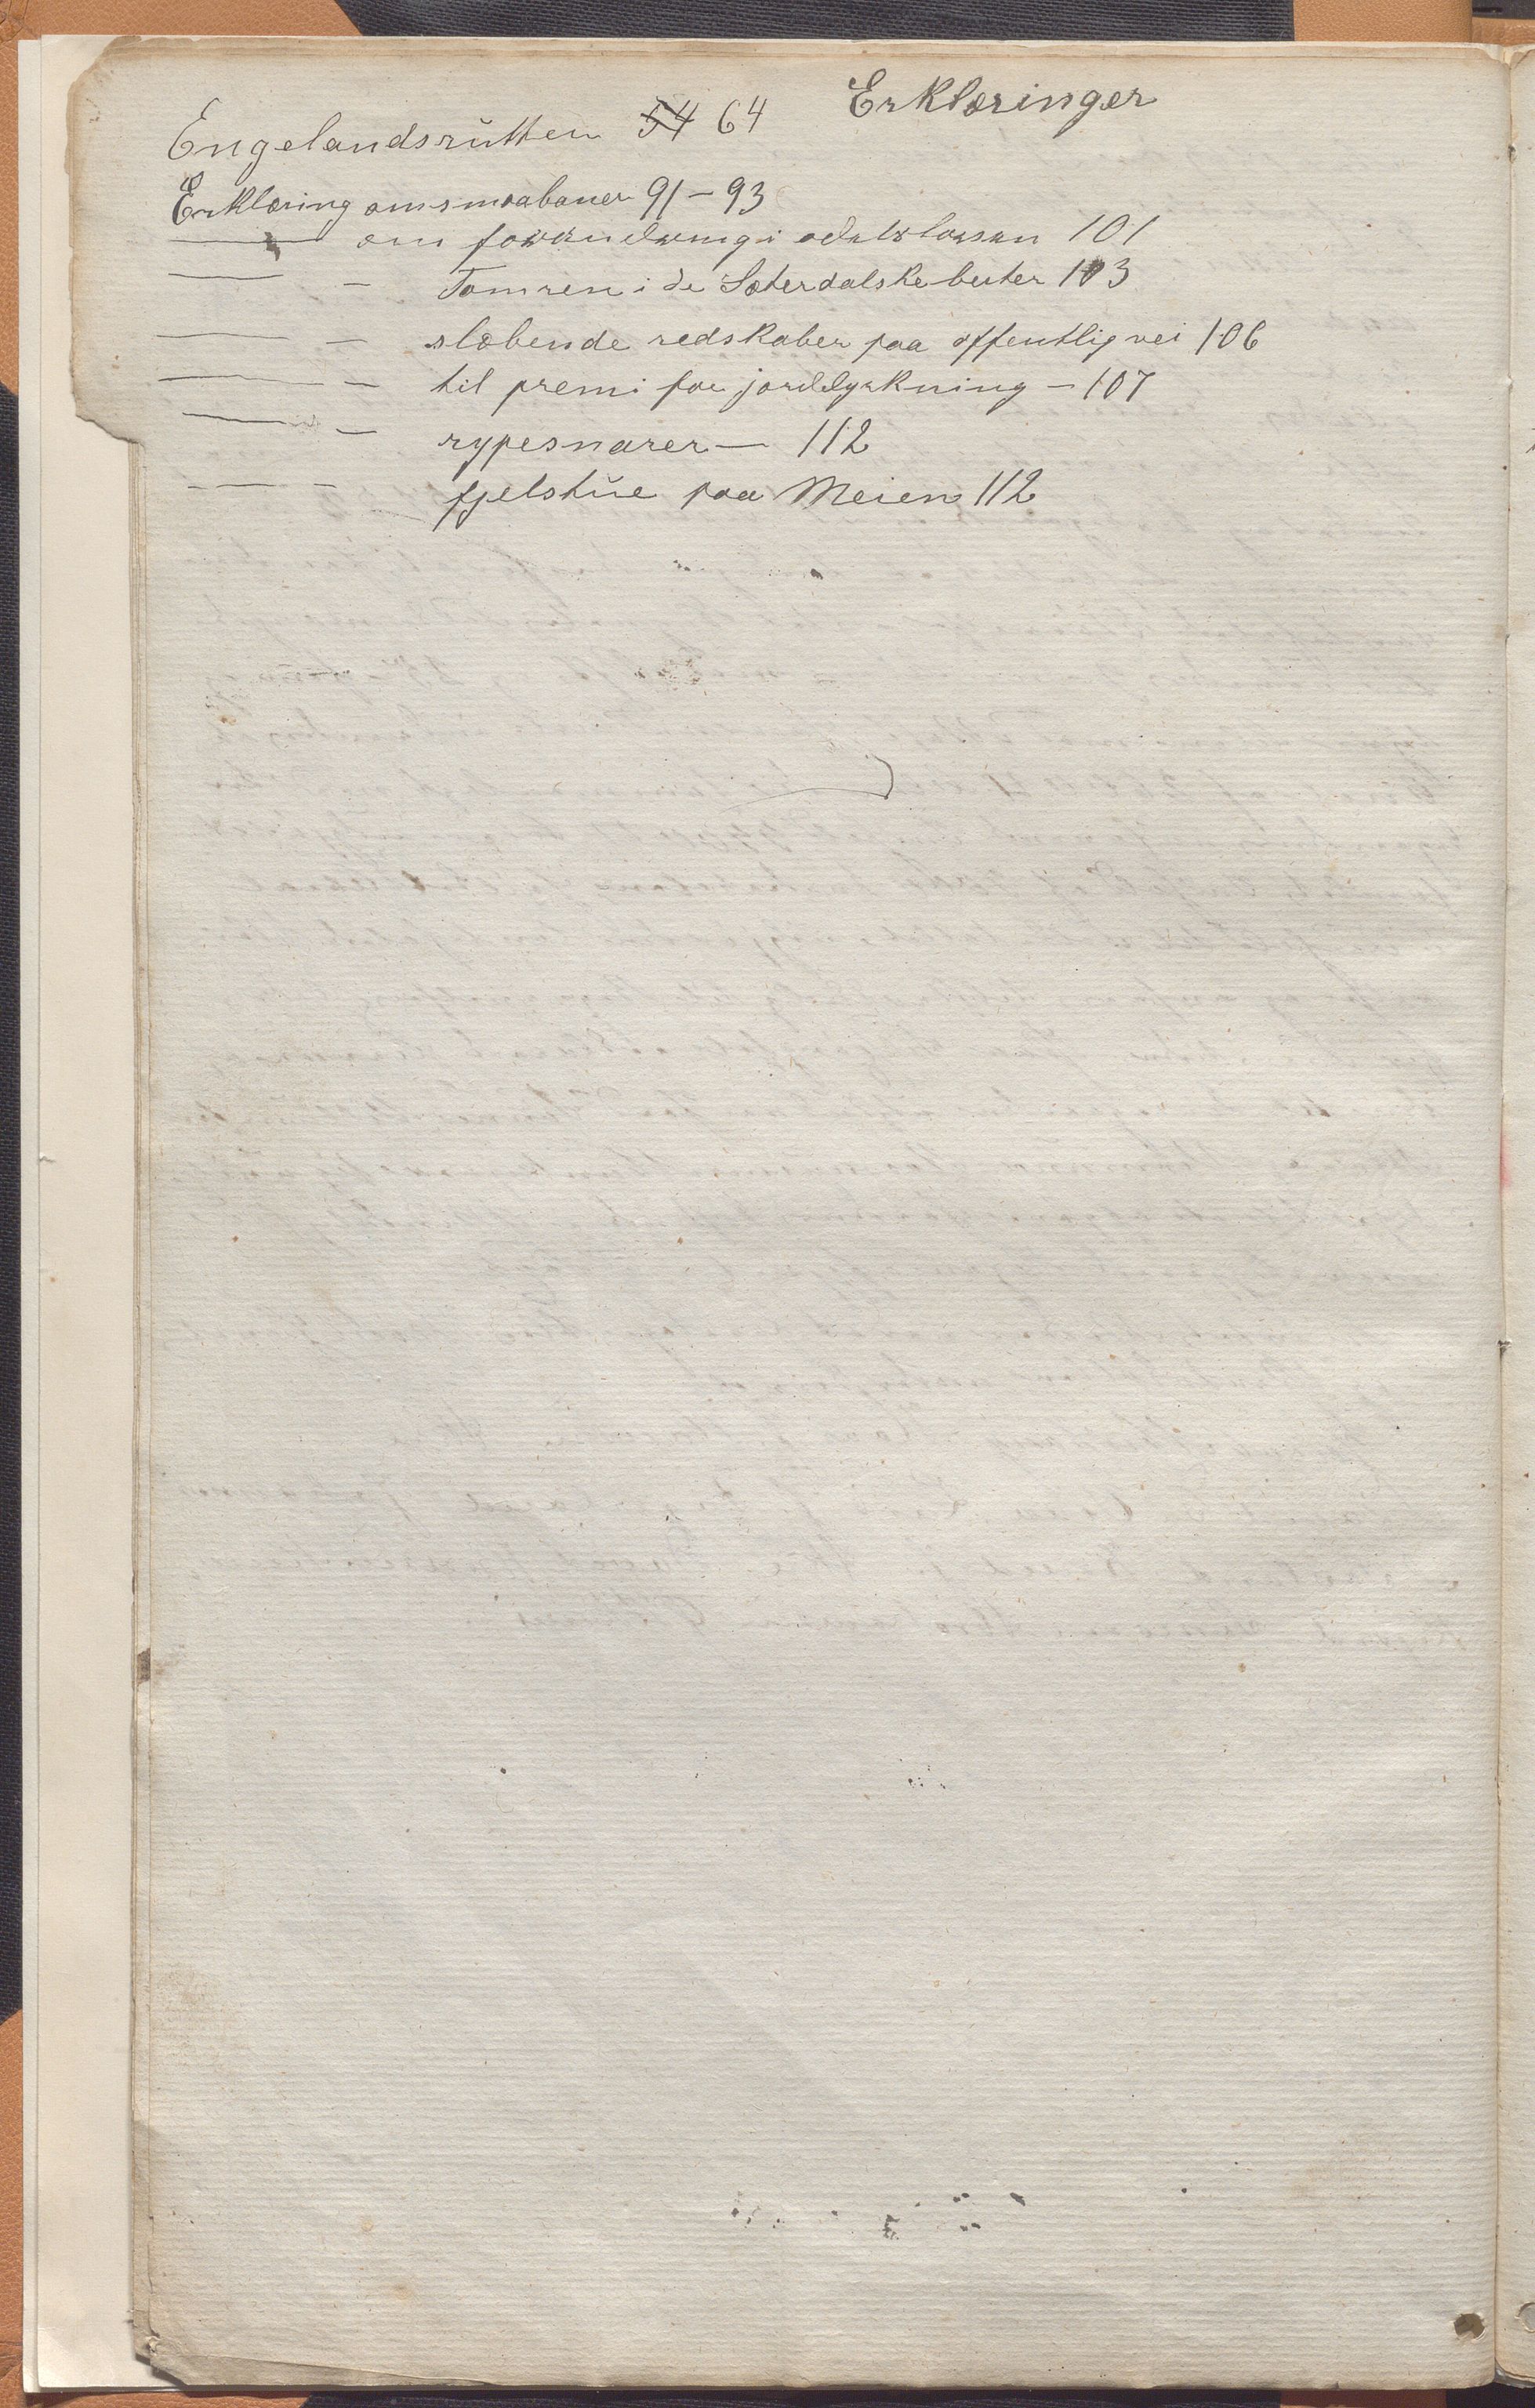 Erklæringer
Engelandsrutten 54 64
Erklæring om smaabaner 91 - 93
— om forandring i odelsloven 101
— - Tømren i de Sæterdalske heier 103
— - slæbende redskaber paa offentlig vei 106
— - til premi for jorddyrkning - 107
— - rypesnarer — 112
— - fjelstue paa Meien 112